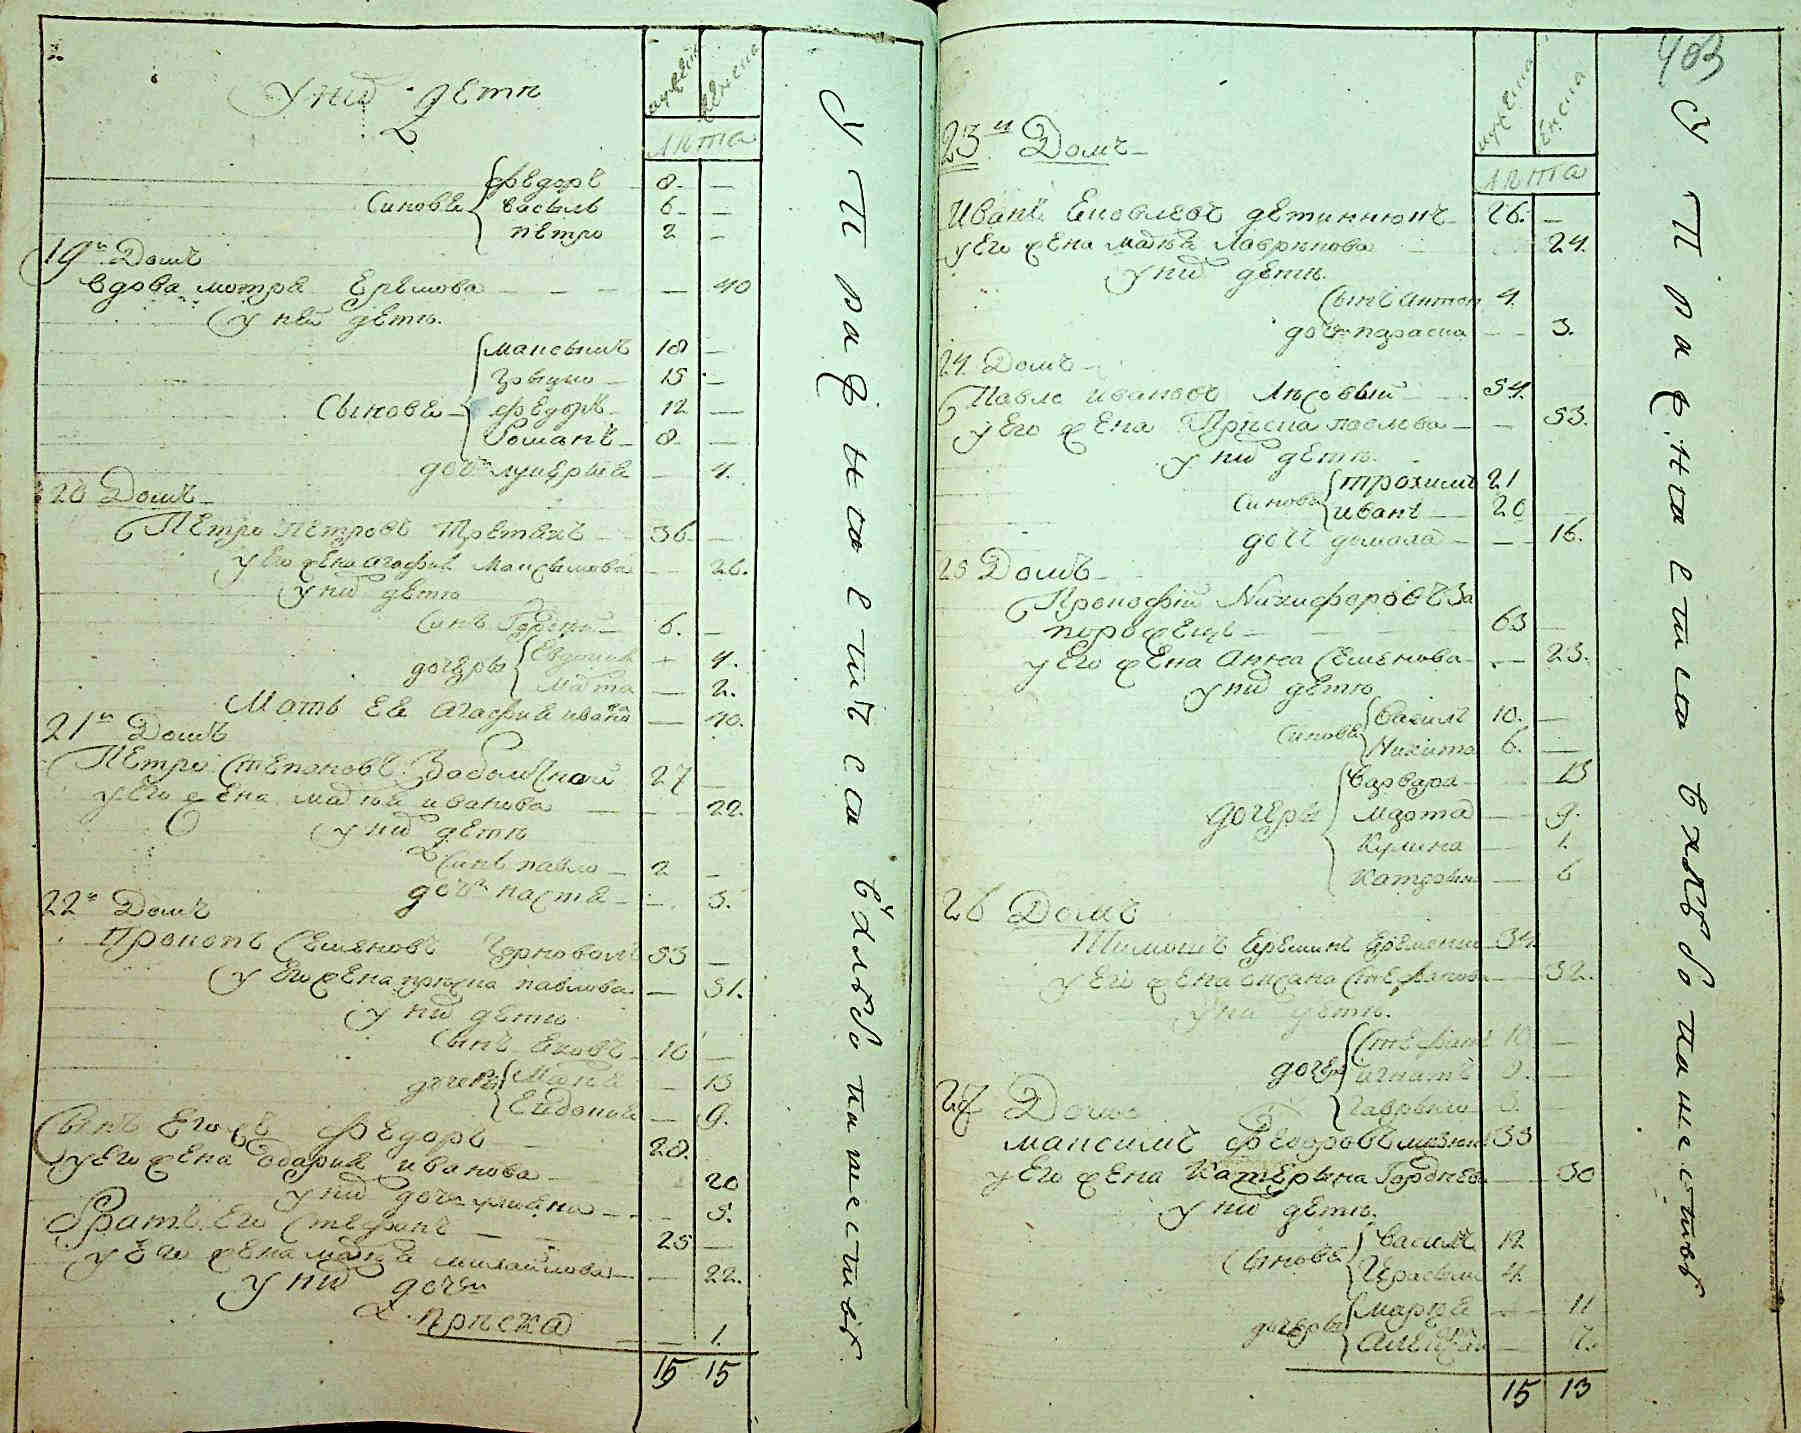 У ниӑ дети
мужеска
женска
лѣта
Синовѣ
федоръ 8 —
василь 6 —
петро 2 —
19й Домъ
вдова мотря Еремова — 40
у ней дети
Сынове
максымъ 18 —
15 —
федоръ 12 —
Романъ 8 —
дочъ лукерия — 4.
20 Домъ
Петро Петровъ Третякъ 36 —
у Его жена агафия Максымова — 26.
у них дети
Синъ Гордей 6. —
дочеры
Евдокия — 4.
Марта — 2.
Мать Ея агафия — 40.
21й Домъ
Петро Степановъ 27 —
у Его жена мария иванова — 22.
у них дети
Синъ павло 2 —
дочъ настя — 3.
22й Домъ
Прокопъ Семеновъ 53 —
у Его жена приска павлова — 51.
у них дети
Сынъ Яковъ 16 —
дочеры
Мария — 13
Евдокия — 9.
Сынъ Его федоръ 28.
у Его жена одария иванова 20
у них дочъ улияна — 5.
Братъ Его Стефанъ 25 —
у Его жена мария михайлова — 22.
у них дочъ
Приска — 1.
15 15
У П р а ж н я е т ъ с я въ хлѣбопашествѣ
403
мужеска
женска
лѣта
23й Домъ
Иванъ Яковлевъ 26. —
у Его жена мария Лавринова 24.
у них дети
Сынъ антон 4.
дочъ параска — 3.
24 Домъ
Павло ивановъ Лѣсовый 54.
у Его жена Приска павлова — 53.
у них дети
Синовя
трохимъ 21
иванъ — 20
дочъ — 16.
25 Домъ
Прокофий Никифоровъ За
порожецъ — 63
у Его жена Анна Семенова — 23.
у них дети
Синовя
Василъ 10. —
Никита 6. —
дочеры
Варвара — 13
Марта — 9.
Кулина — 1.
Катрина — 6
26 Домъ
Тимошъ Еремин 34
у Его жена оксана Стефанова — 32.
у них дети
дочеры
Стефанъ 10 —
игнатъ 9. —
гаврыло —
27 Домъ
максимъ федоровъ 33
у Его жена Катерына Гордиева — 30
у них дети
Сынове
Василъ 12
Герасим 4.
дочеры
мария — 11
— 7.
15 13
У П р а ж н я е т с я в хлѣбопашествѣ